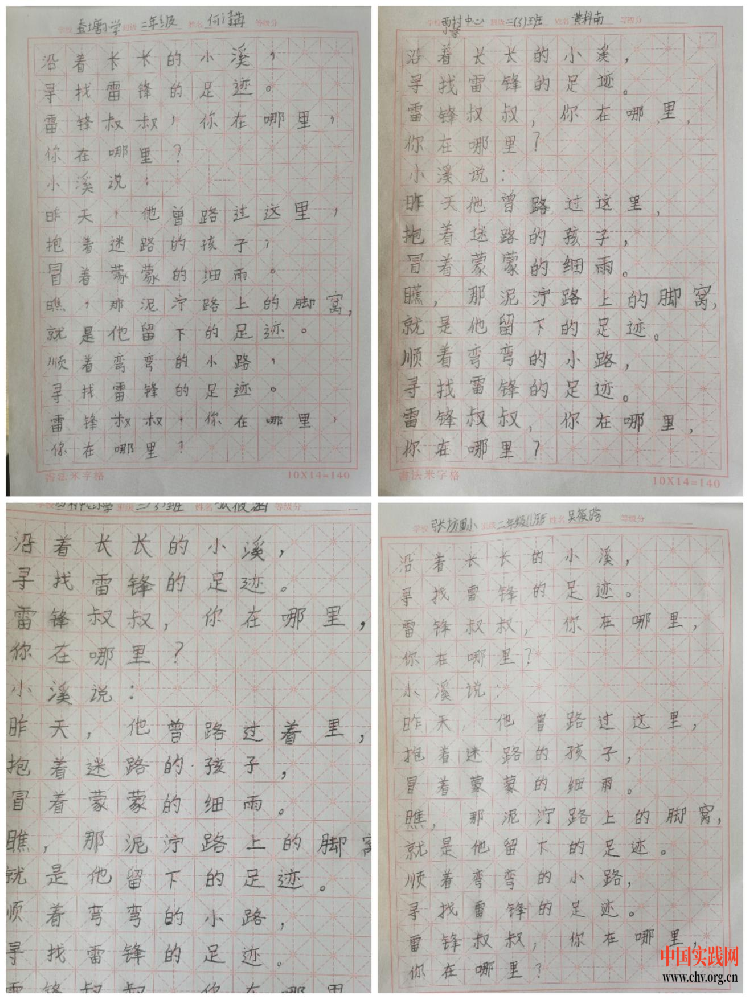 二年级
沿着长长的小溪，
寻找雷锋的足迹。
雷锋叔叔，你在哪里，
你在哪里？
小溪说：
昨天，他曾路过这里，
抱着迷路的孩子，
冒着蒙蒙的细雨。
瞧，那泥泞路上的脚窝，
就是他留下的足迹。
顺着弯弯的小路，
寻找雷锋的足迹。
雷锋叔叔，你在哪里，
你在哪里？
书法米字格 10X14=140
中心 二(3)班 黄科南 等级分
沿着长长的小溪，
寻找雷锋的足迹。
雷锋叔叔，你在哪里，
你在哪里？
小溪说：
昨天他曾路过这里，
抱着迷路的孩子，
冒着蒙蒙的细雨。
瞧，那泥泞路上的脚窝，
就是他留下的足迹。
顺着弯弯的小路，
寻找雷锋的足迹。
雷锋叔叔，你在哪里，
你在哪里？
书法米字格 10X14=140
二(3)班 姓名 等级分
沿着长长的小溪，
寻找雷锋的足迹。
雷锋叔叔，你在哪里，
你在哪里？
小溪说：
昨天，他曾路过着里，
抱着迷路的孩子，
冒着蒙蒙的细雨。
瞧，那泥泞路上的脚窝
就是他留下的足迹。
顺着弯弯的小路，
寻找雷锋的足迹。
雷锋叔叔，你在哪里，
二年级(1)班 姓名 吴筱 等级分
沿着长长的小溪，
寻找雷锋的足迹。
雷锋叔叔，你在哪里，
你在哪里？
小溪说：
昨天，他曾路过这里，
抱着迷路的孩子，
冒着蒙蒙的细雨。
瞧，那泥泞路上的脚窝，
就是他留下的足迹。
顺着弯弯的小路，
寻找雷锋的足迹。
雷锋叔叔，你在哪里，
你在哪里？
中国实践网
www.chv.org.cn